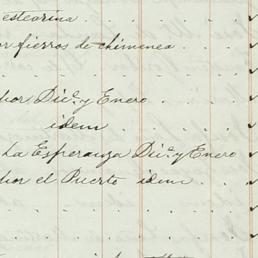 estearina
fierros de chimenea
Dic.e y Enero
idem
La Esperanza Dic.e y Enero
por el Puerto idem